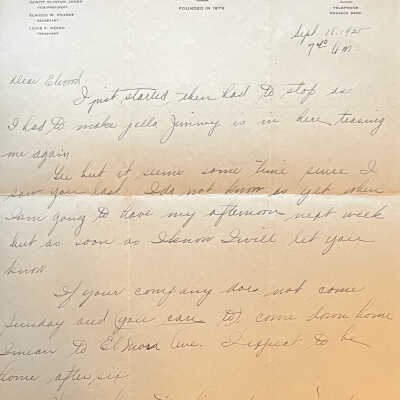 DEWITT CLINTON JONES
VICE-PRESIDENT
ELWOOD M. PEARCE
SECRETARY
LOUIS F. HERSH
TREASURER
FOUNDED IN 1879
TELEPHONE
Sept 16, 1925
7 40 A.M.
Dear Elwood,
I just started then had to stop as
I had to make jello Jimmy is in here teasing
me again.
Gee but it seems some time since I
saw you last. I do not know as yet when
I am going to have my afternoon next week
but as soon as I know I will let you
know.
If your company does not come
Sunday and (you care to) come down home
I mean to El Mora Ave. I expect to be
home after six.